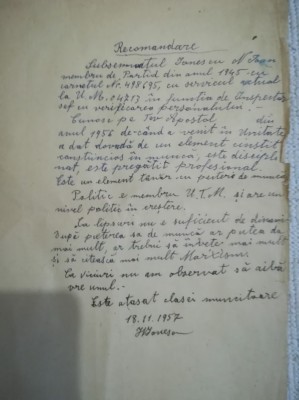 Recomandare
Subsemnatul Ionescu N Ioan
membru de Partid din anul 1945 cu
carnetul Nr. 498695, cu serviciul actual
la U.M. 04213 în functia de Inspector
sef cu verificarea personalului.-
Cunosc pe Tov Apostol din
anul 1956 de când a venit în Unitate
a dat dovadă de un element constit
constiincios în muncă, este discipli
nat, este pregătit profesional.
Este un element tânăr cu putere de muncă
Politic e membru U.T.M. și are un
nivel politic în creștere.
Ca lipsuri nu e suficient de dinamic
După puterea sa de muncă ar putea da
mai mult, ar trebui să învețe mai mult
și să citească mai mult Marxism.
Ca vicii nu am observat să aibă
vre unul.-
Este atasat clasei muncitoare
18.11.1957
Ionescu